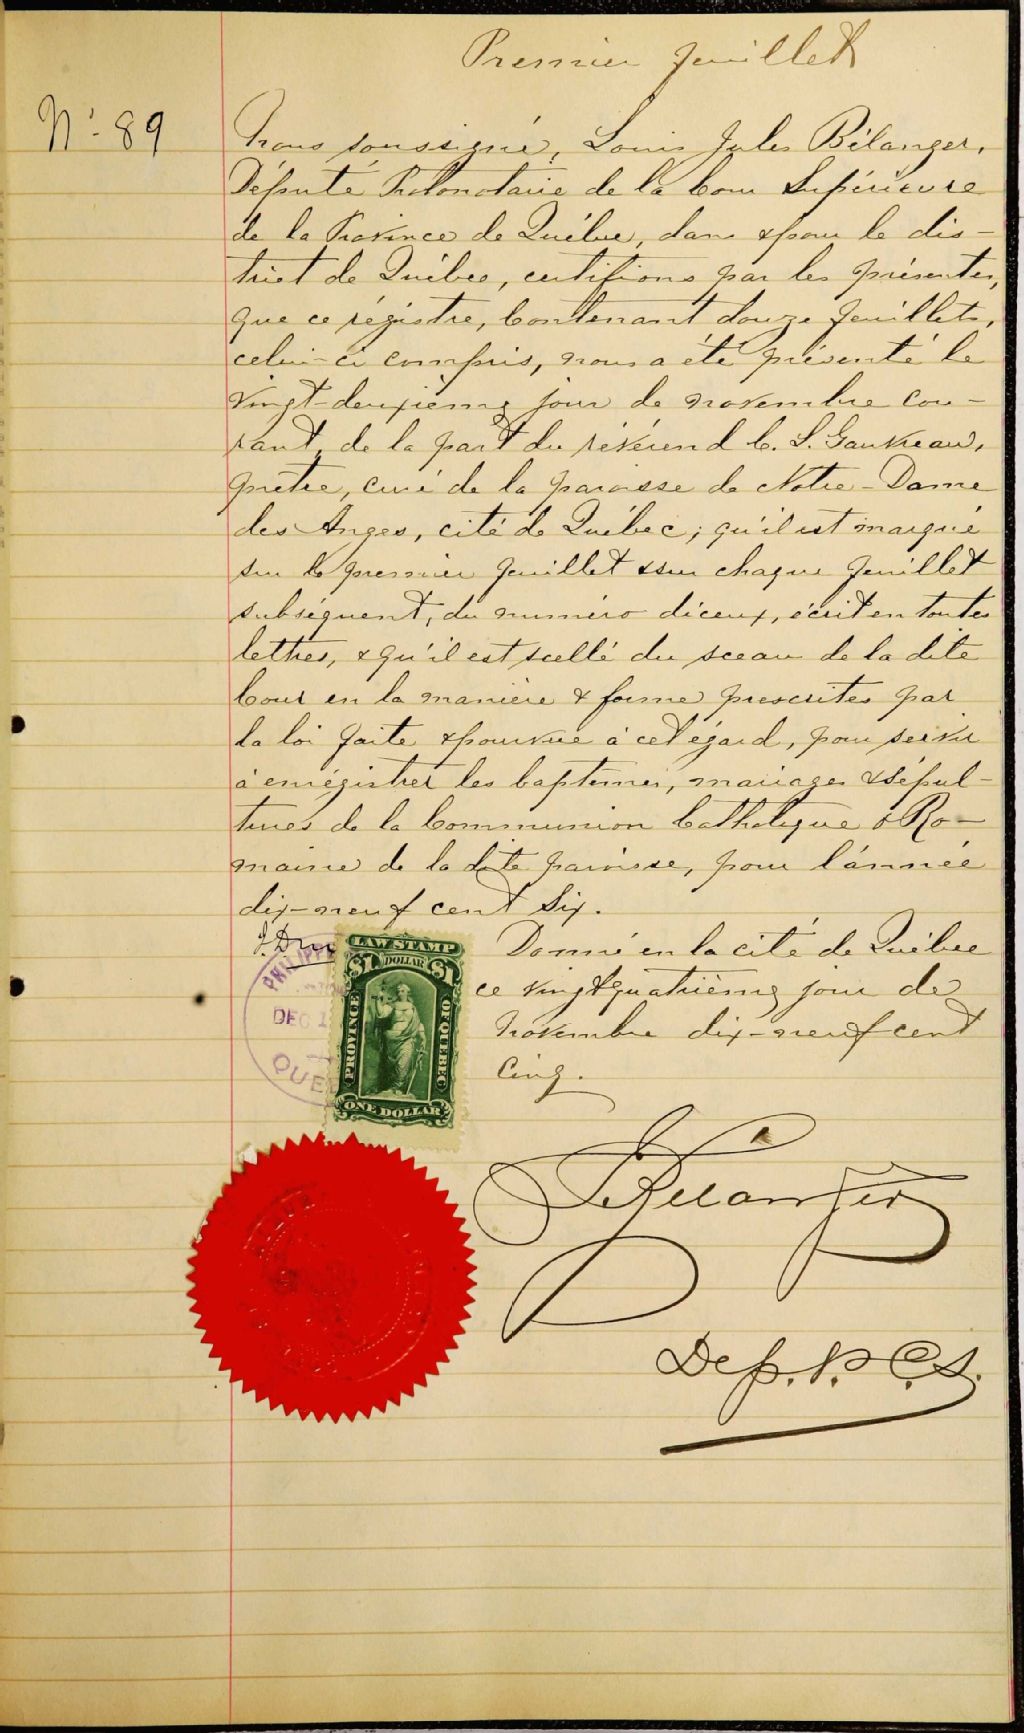 Premier feuillet
No. 89
Nous soussigné, Louis Jules Bélanger,
Député Protonotaire de la Cour Supérieure
de la Province de Québec, dans & pour le dis-
trict de Québec, certifions par les présentes,
que ce régistre, contenant douze feuillets,
celui-ci compris, nous a été présenté le
vingt-deuxième jour de novembre cou-
rant, de la part du révérend C. S. Gauvreau,
prêtre, curé de la paroisse de Notre-Dame
des Anges, cité de Québec; qu'il est marqué
sur le premier feuillet & sur chaque feuillet
subséquent, du numéro diceux, écrit en toutes
lettres, & qu'il est scellé du sceau de la dite
Cour en la manière & forme prescrites par
la loi faite & pourvue à cet égard, pour servir
à enrégistrer les baptemes, mariages & sépul-
tures de la Communion Catholique & Ro-
maine de la dite paroisse, pour l'année
dix-neuf cent Six.
Donné en la cité de Québec
ce vingt quatrième jour de
Novembre dix-neuf cent
Cinq.
LAW STAMP
$1 DOLLAR $1
PROVINCE OF QUEBEC
ONE DOLLAR
DEC
Bélanger
Dep. P. C. S.